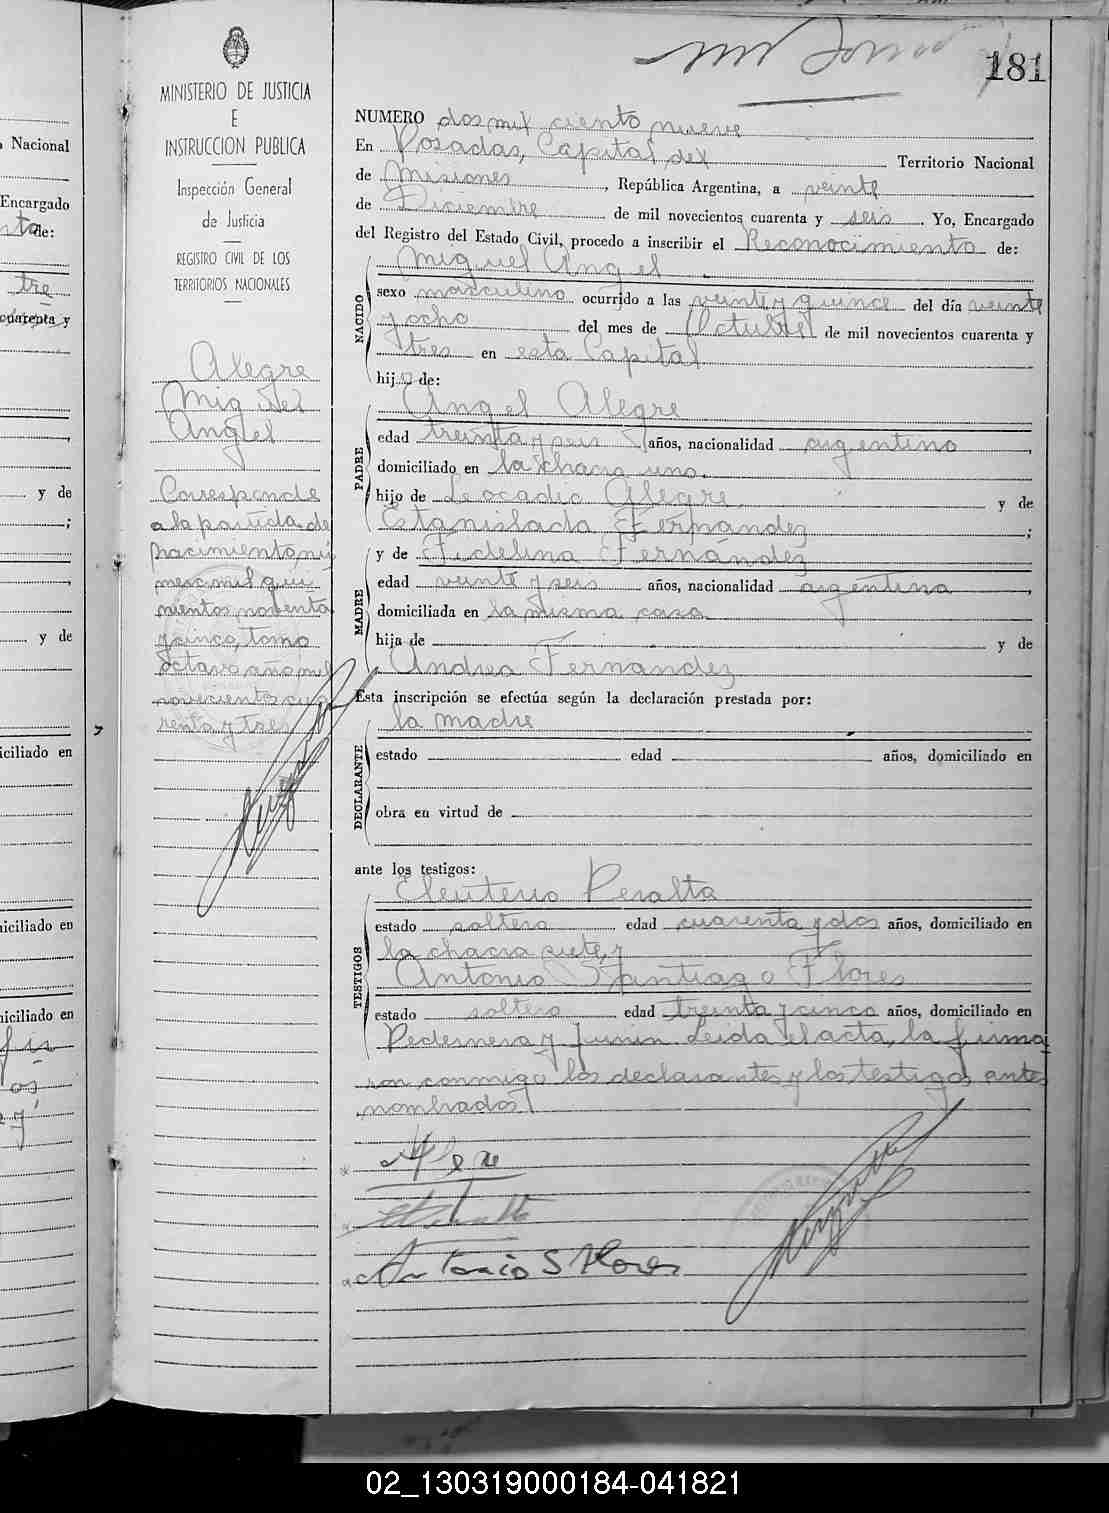 181
MINISTERIO DE JUSTICIA
E
INSTRUCCION PUBLICA
Inspección General
de Justicia
REGISTRO CIVIL DE LOS
TERRITORIOS NACIONALES
Alegre
Miguel
Angel
Corresponde
a la partida de
nacimiento nú
mero mil qui
nientos noventa
y cinco, tomo
octavo año mil
novecientos cua
renta y tres
NUMERO dos mil ciento nueve
En Posadas, Capital del Territorio Nacional
de Misiones, República Argentina, a veinte
de Diciembre de mil novecientos cuarenta y seis. Yo, Encargado
del Registro del Estado Civil, procedo a inscribir el Reconocimiento de:
NACIDO
Miguel Angel
sexo masculino ocurrido a las veinte y quince del día veinte
y ocho del mes de Octubre de mil novecientos cuarenta y
tres en esta Capital
hijo de:
PADRE
Angel Alegre
edad treinta y seis años, nacionalidad argentino,
domiciliado en la chacra uno.
hijo de Leocadio Alegre y de
Estanislada Fernández;
MADRE
y de Fidelina Fernández
edad veinte y seis años, nacionalidad argentina,
domiciliada en la misma casa
hija de y de
Andrea Fernandez
Esta inscripción se efectúa según la declaración prestada por:
DECLARANTE
la madre
estado edad años, domiciliado en
obra en virtud de
ante los testigos:
TESTIGOS
Eleuterio Peralta
estado soltero edad cuarenta y dos años, domiciliado en
la chacra siete, y
Antonio Santiago Flores
estado soltero edad treinta y cinco años, domiciliado en
Pedernera y Junin. Leida el acta, la firma
ron conmigo los declarantes y los testigos antes
nombrados
Antonio S Flores
o Nacional
Encargado
de:
tre
cuarenta y
y de
;
y de
iciliado en
iciliado en
iciliado en
02_130319000184-041821